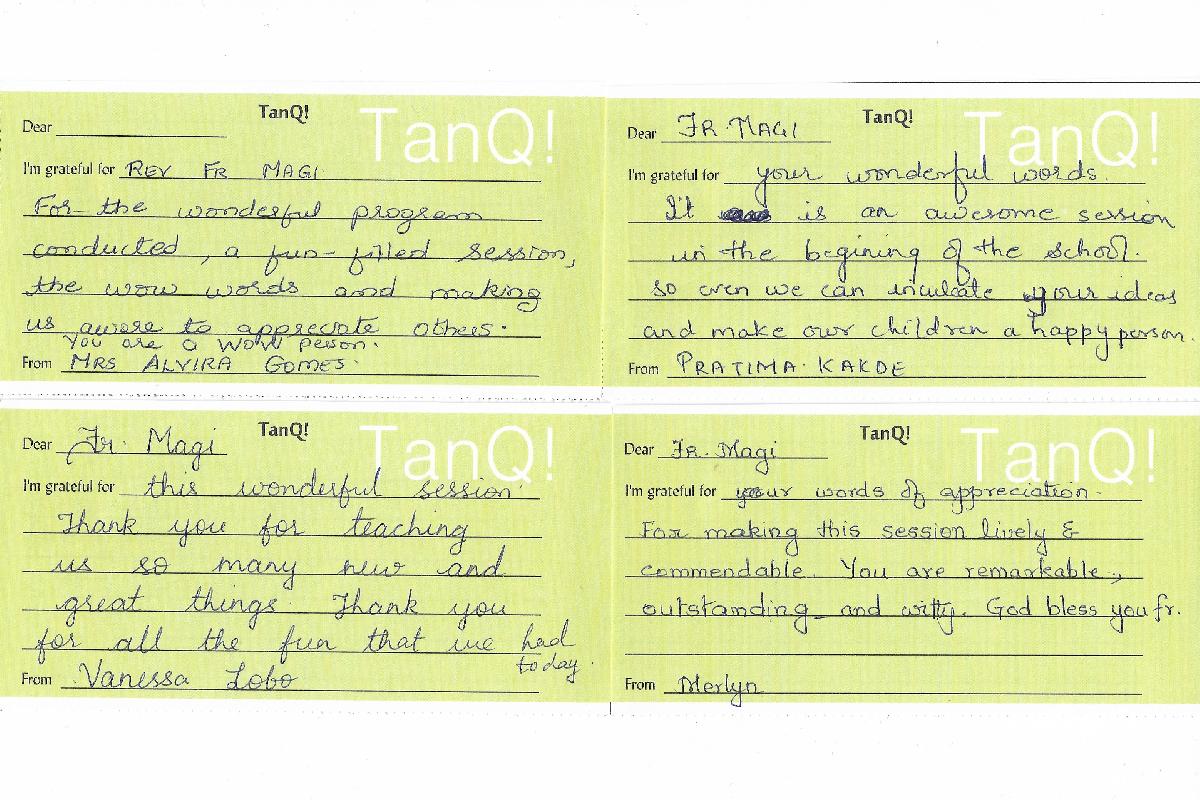 TanQ!
TanQ!
Dear
I'm grateful for REV FR MAGI
For the wonderful program
conducted, a fun-filled session,
the wow words and making
us aware to appreciate others.
You are a WOW person.
From MRS ALVIRA GOMES.
TanQ!
TanQ!
Dear FR. MAGI
I'm grateful for your wonderful words.
It is an awesome session
in the begining of the school.
So even we can inculcate your ideas
and make our children a happy person.
From PRATIMA. KAKDE
TanQ!
TanQ!
Dear Fr. Magi
I'm grateful for this wonderful session.
Thank you for teaching
us so many new and
great things. Thank you
for all the fun that we had
today.
From Vanessa Lobo
TanQ!
TanQ!
Dear Fr. Magi
I'm grateful for your words of appreciation.
For making this session lively &
commendable. You are remarkable,
outstanding and witty. God bless you fr.
From Merlyn